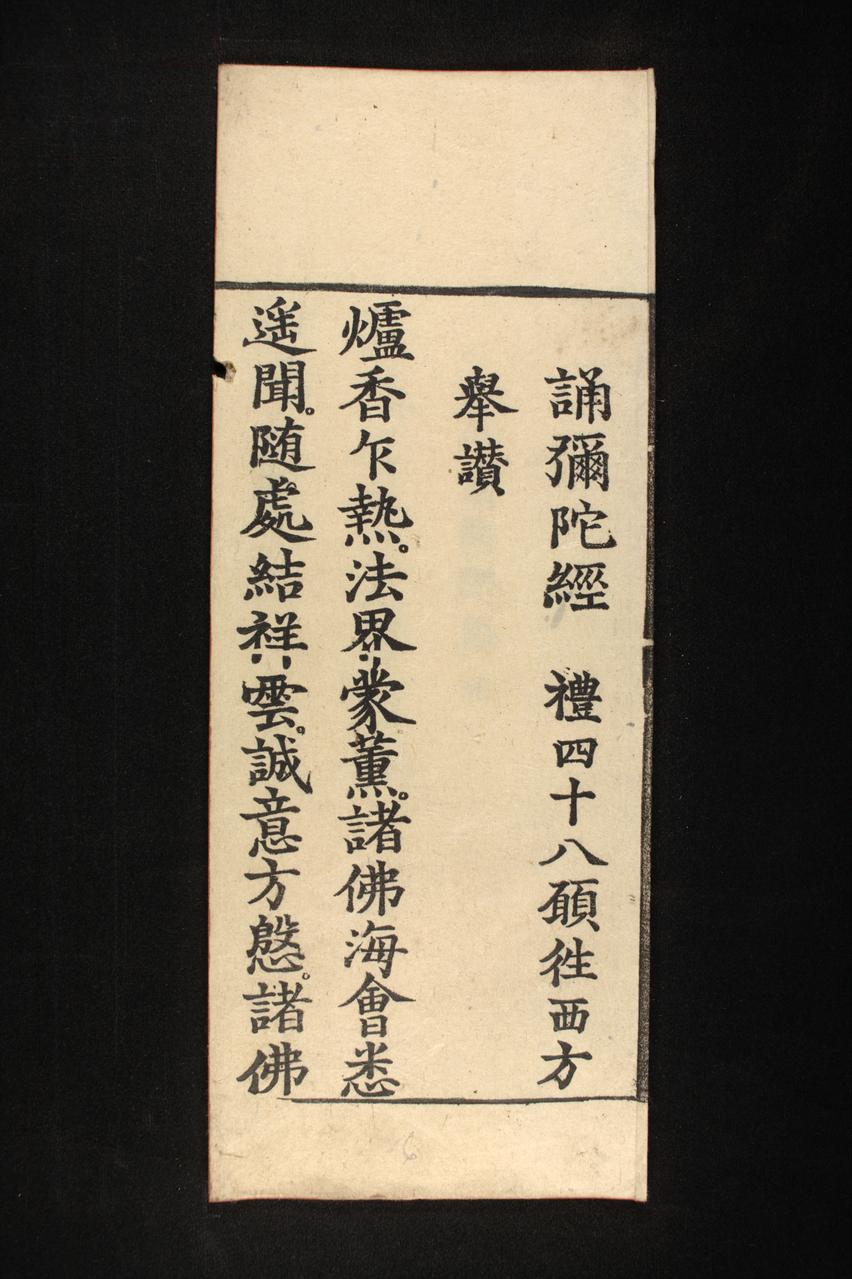 誦彌陀經　禮四十八願徃西方
舉讃
爐香乍熱。法界蒙薰。諸佛海會悉
遥聞。随處結祥雲。誠意方慇。諸佛
6